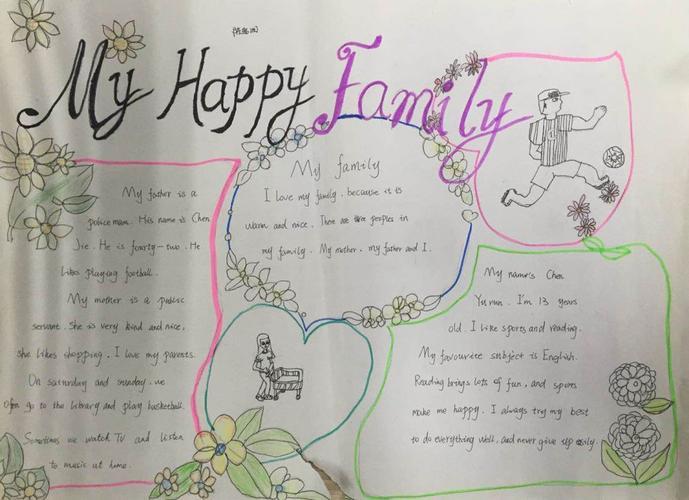 My Happy Family
My father is a
policeman. His name is Chen
Jie. He is fourty-two. He
likes playing football.
My mother is a public
servant. She is very kind and nice,
she likes shopping. I love my parents.
On saturday and sunday. we
often go to the library and play basketball.
Sometimes we watch TV and listen
to music at home.
My family
I love my family. because it is
warm and nice. There are three peoples in
my family. My mother, my father and I.
My name's Chen
Yurun. I'm 13 years
old. I like sports and reading.
My favourite subject is English.
Reading brings lots of fun, and sports
make me happy. I always try my best
to do everything well, and never give up easily.